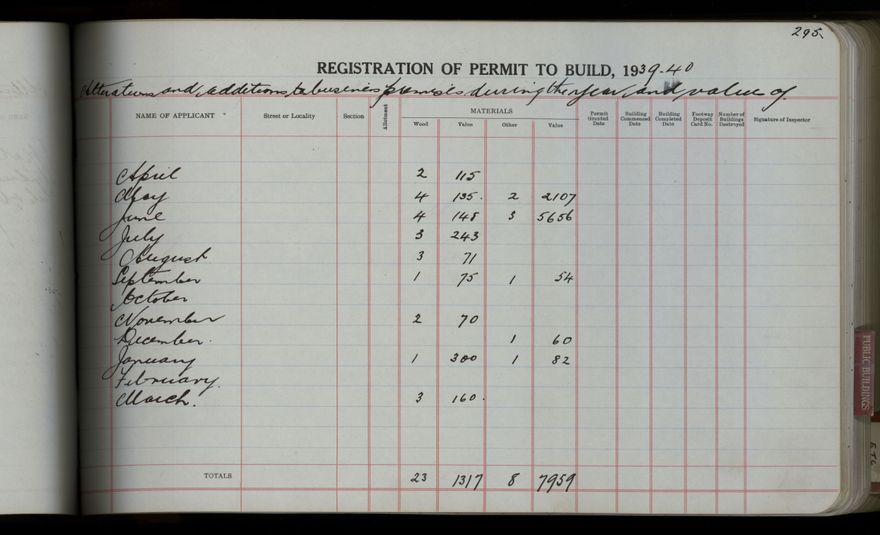 295.
REGISTRATION OF PERMIT TO BUILD, 1939-40
Alterations and additions to business premises during the year and value of
NAME OF APPLICANT Street or Locality Section Allotment MATERIALS Permit Granted Date Building Commenced Date Building Completed Date Footway Deposit Card No. Number of Buildings Destroyed Signature of Inspector
Wood Value Other Value
April 2 115
May 4 135. 2 2107
June 4 148 3 5656
July 3 243
August 3 71
September 1 75 1 54
October
November 2 70
December. 1 60
January 1 300 1 82
February.
March. 3 160.
TOTALS 23 1317 8 7959
PUBLIC BUILDINGS